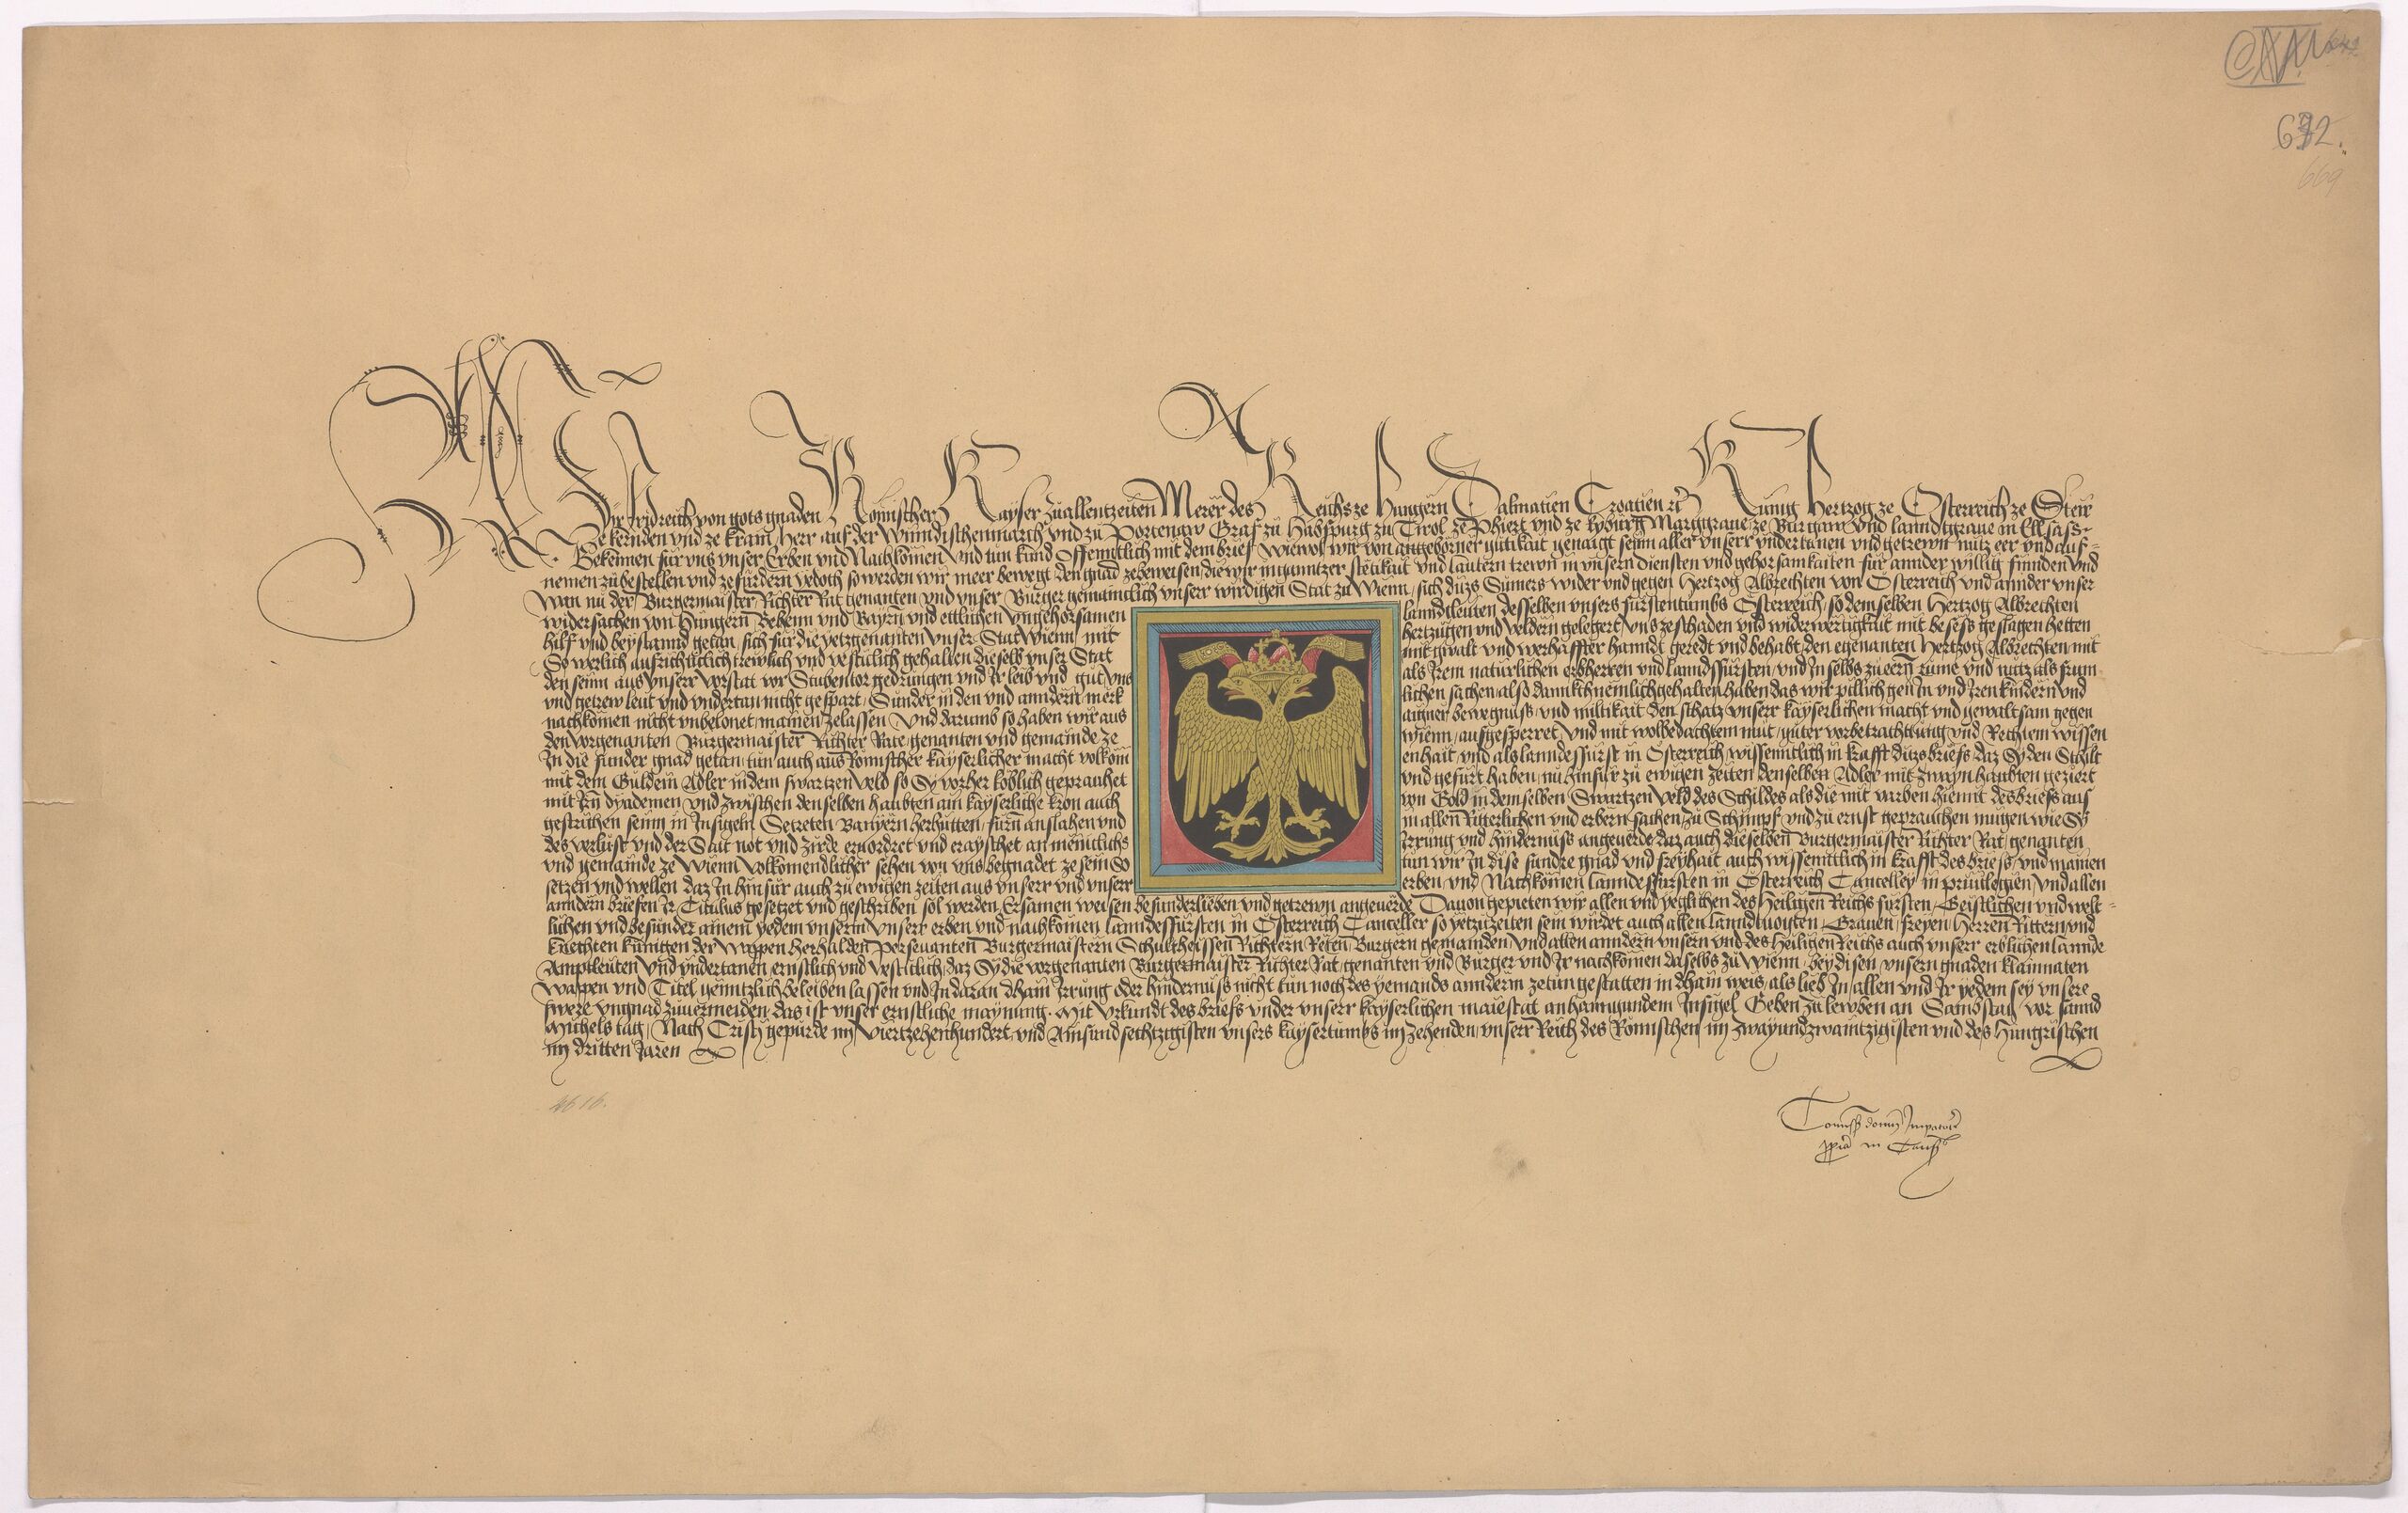 642
632.
669
Wir Fridreich von gots gnaden Römischer Kayser zuallenntzeiten Merer des Reichs ze Hungern Dalmatien Croatien etc Kunig Hertzog ze Österreich ze Steir
ze kernden vnd ze kram, Herr auf der Wyndischenmarch vnd zu Portenaw Graf zu Habspurg zu Tirol ze Phiert vnd ze kyburg Marggraue ze Burgaw vnd lanndtgraue in Ellsass-
Bekennen für vns vnser Erben vnd Nachkomen vnd tun kund Offennttlich mit dem brief Wiewol wir von angeborner gütikait genaigt seinn aller vnserr vndertanen vnd getrewn nutz eer vnd auf-
nemen zubestellen vnd zefürdern yedoch so werden wir meer bewegt den gnad zebeweisen, die wir in ganntzer stetikait vnd lautern trewn in vnsern diensten vnd gehorsamkaiten für annder willig finnden vnd
Wan nu der Burgermaister Richter Rat genanten vnd vnser Burger gemaintlich vnserr wirdigen Stat zu Wienn, sich ditzs Sumers wider vnd gegen Hertzog Albrechten von Österreich vnd annder vnser
widersachen von Hungern Behem vnd Bayrn vnd ettlichen vngehorsamen lanndtleuten desselben vnsers fürstentumbs Österreich, so demselben Hertzog Albrechten
hilf vnd beystannd getan, sich für die yetzgenanten vnser Stat Wienn mit hertzügen vnd veldern gelegert, vns zeschaden vnd widerwertigkait mit besess geslagen hetten
So werlich aufrichticlich trewlich vnd vesticlich gehalten dieselb vnser Stat mit gwalt vnd werhaffter hanndt geredt vnd behabt, den egenanten Hertzog Albrechten mit
den seinn aus vnserr vorstat vor Stubentor gedrungen vnd Ir leib vnd gut vns als Irem naturlichen erbherren vnd lanndssfürsten, vnd In selbs zu eern rume vnd nutz als frum
vnd getrew leut vnd vndertan nicht gespart, Sunder in den vnd anndern merk lichen sachen also dannkchnemlich gehalten haben das wir pillich gen In vnd Iren kindern vnd
nachkomen nicht vnbelonet mainen zelassen Vnd darumb so haben wir aus aigner bewegnuss vnd miltikait den schatz vnserr kayserlichen macht vnd gewaltsam gegen
den vorgenanten Burgermaister Richter Rate, genanten vnd gemainde ze Wienn, aufgesperret vnd mit wolbedachtem mut, guter vorbetrachttung vnd Rechtem wissen
In die sunder gnad getan, tun auch aus Romischer kayserlicher macht volkom enhait vnd als lanndesfürst in Österreich wissenntlich in krafft ditzs briefs, daz Sy den Schilt
mit dem Guldein Adler in dem swartzen veld so Sy vorher loblich gepraucht vnd gefürt haben, nu hinfür zu ewigen zeiten denselben Adler mit zwayn haubten geziert
mit Irn dyademen vnd zwischen denselben haubten ain kayserliche kron auch von Gold in demselben Swartzen veld des Schildes als die mit varben hiemit des briefs aus
gestrichen seinn in Insigeln Secreten Banyern herhutten, fürn anslahen vnd in allen Ritterlichen vnd erbern sachen, zu Schimpf vnd zu ernst geprauchen mügen wie Sy
des verlust vnd der Stat not vnd zirde eruordret vnd erayschet an menitlichs Irrung vnd hindernuss angeuerde, daz auch dieselben Burgermaister Richter Rat, genanten
vnd gemainde ze Wienn volkomendlicher sehen von vns begnadet ze sein So tun wir In dise sundre gnad vnd freyhait auch wissenntlich in krafft des briefs, vnd mainen
setzen vnd wellen daz In hinfür auch zu ewigen zeiten aus vnserr vnd vnserr erben vnd Nachkomen lanndesfürsten in Österreich Cancelley in priuilegien vnd allen
anndern briefen Ir Titulus gesetzet vnd geschriben sol werden, Ersamen weisen besunderlieben vnd getrewn angeuerde Dauon gepieten wir allen vnd yeglichen des Heiligen Reichs fursten, Geistlichen vnd welt-
lichen vnd besunder ainem yedem vnserm vnserr erben vnd nachkomen lanndessfürsten in Österreich Canceller so yetzuzeiten sein wirdet auch allen lanndtuogten, Grauen, freyen, Herren Rittern vnd
knechten kunigen der wappen Herhalden Perseuanten Burgermaistern Schultheissen Richtern Reten Burgern gemainden vnd allen anndern vnsern vnd des Heiligen Reichs auch vnserr erblichen lannde
Amptleuten vnd vndertanen ernstlich vnd vesticlich, daz Sy die vorgenanten Burgermaister Richter Rat, genanten vnd Burger vnd Ir nachkomen daselbs zu Wienn, bey disen vnsern gnaden klainnaten
wappen vnd Titel genntzlich beleiben lassen vnd In daran dhain Irrung oder hindernuss nicht tun noch des yemands anndern zetun gestatten in dhain weis, als lieb In allen vnd Ir yedem sey vnsere
swere vngnad zuuermeiden, das ist vnser ernstliche maynung. Mit vrkundt des briefs vnder vnserr kayserlichen maiestat anhanngundem Insigel Geben zu Lewben an Sambstag vor sannd
Michels tag, Nach Cristi gepurde im Viertzehenhundert vnd Ainsundsechtzigisten vnsers kaysertumbs im zehenden, vnserr Reich des Romischen im zwayundzwaintzigisten vnd des Hungrischen
im dritten Jaren
4616.
Commissio domini Imperatoris
propria in Consilio